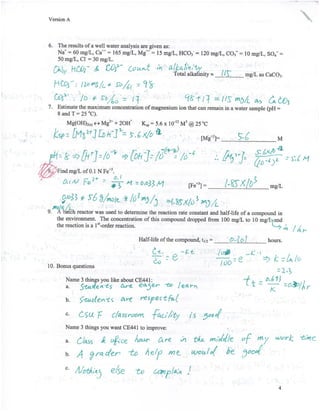 Version A
6. The results of a well water analysis are given as:
Na⁺ = 60 mg/L, Ca⁺⁺ = 165 mg/L, Mg⁺⁺ = 15 mg/L, HCO₃⁻ = 120 mg/L, CO₃⁼ = 10 mg/L, SO₄⁼ =
50 mg/L, Cl⁻ = 30 mg/L.
Only HCO₃⁻ & CO₃²⁻ count in alkalinity
Total alkalinity = 115 mg/L as CaCO₃
= 98
CO₃²⁻: 10 * 50/60 = 17
98 + 17 = 115 mg/L as CaCO₃
7. Estimate the maximum concentration of magnesium ion that can remain in a water sample (pH =
8 and T = 25 °C).
Mg(OH)₂(s) ↔ Mg²⁺ + 2OH⁻ Kₛₚ = 5.6 x 10⁻¹² M³ @ 25 °C
[Mg²⁺]= 5.6 M
Find mg/L of 0.1 N Fe⁺³.
= 0.033 M
[Fe⁺³] = 1.85 x 10³ mg/L
9. A batch reactor was used to determine the reaction rate constant and half-life of a compound in
the environment. The concentration of this compound dropped from 100 mg/L to 10 mg/L and
the reaction is a 1ˢᵗ-order reaction.
1 hr
Half-life of the compound, t₀.₅ = 0.301 hours.
= 2.3
10. Bonus questions
Name 3 things you like about CE441:
a. Students are eager to learn
b. Students are respectful
c. CSUF classroom facility is good
Name 3 things you want CE441 to improve:
a. Class & office hour are in the middle of my work time
b. A grader to help me would be good
c. Nothing else to complain!
4